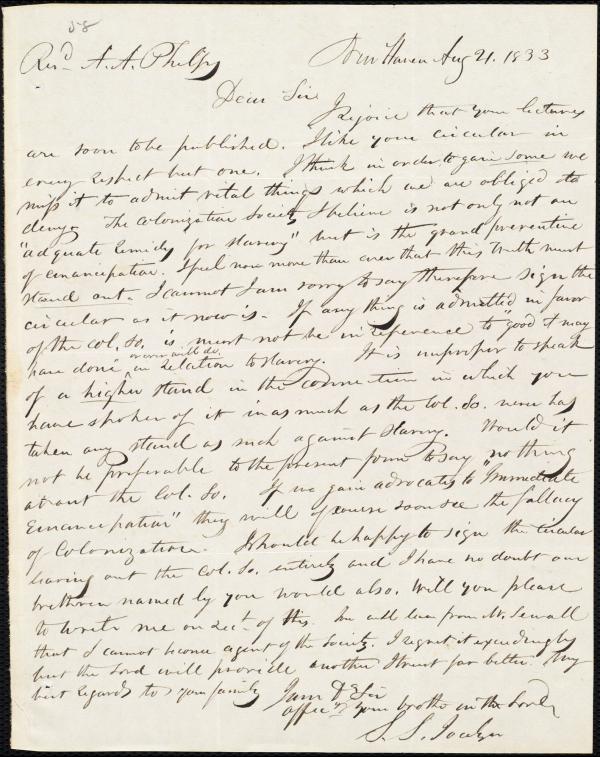 58
Revd. A. A. Phelps New Haven Aug 21. 1833
Dear Sir
I rejoice that your lectures
are soon to be published. I like your circular in
every respect but one. I think in order to gain some we
miss it to admit vital things which we are obliged to
deny. The Colonization Society I believe is not only not an
"adequate remedy for slavery" but is the grand preventive
of emancipation. I feel now more than ever that this truth must
stand out. I cannot I am sorry to say therefore sign the
circular as it now is. If any thing is admitted in favor
of the Col. So. is must not be in reference to "good it may
have done" or ever will do in relation to slavery. It is improper to speak
of a higher stand in the connection in which you
have spoken of it in as much as the Col. So. never has
taken any stand as such against slavery. Would it
not be preferable to the present form to say nothing
about the Col. So. If we gain advocates to "Immediate
Emancipation" they will of course soon see the fallacy
of Colonization. I should be happy to sign the circular
leaving out the Col. So. entirely and I have no doubt our
brethren named by you would also. Will you please
to write me on rect. of this. You will learn from Mr. Sewall
that I cannot become agent of the Society. I regret it exceedingly
but the Lord will provide another I trust far better. My
best regards to your family
I am Dr Sir
affecy your brother in the Lord
S. S. Jocelyn